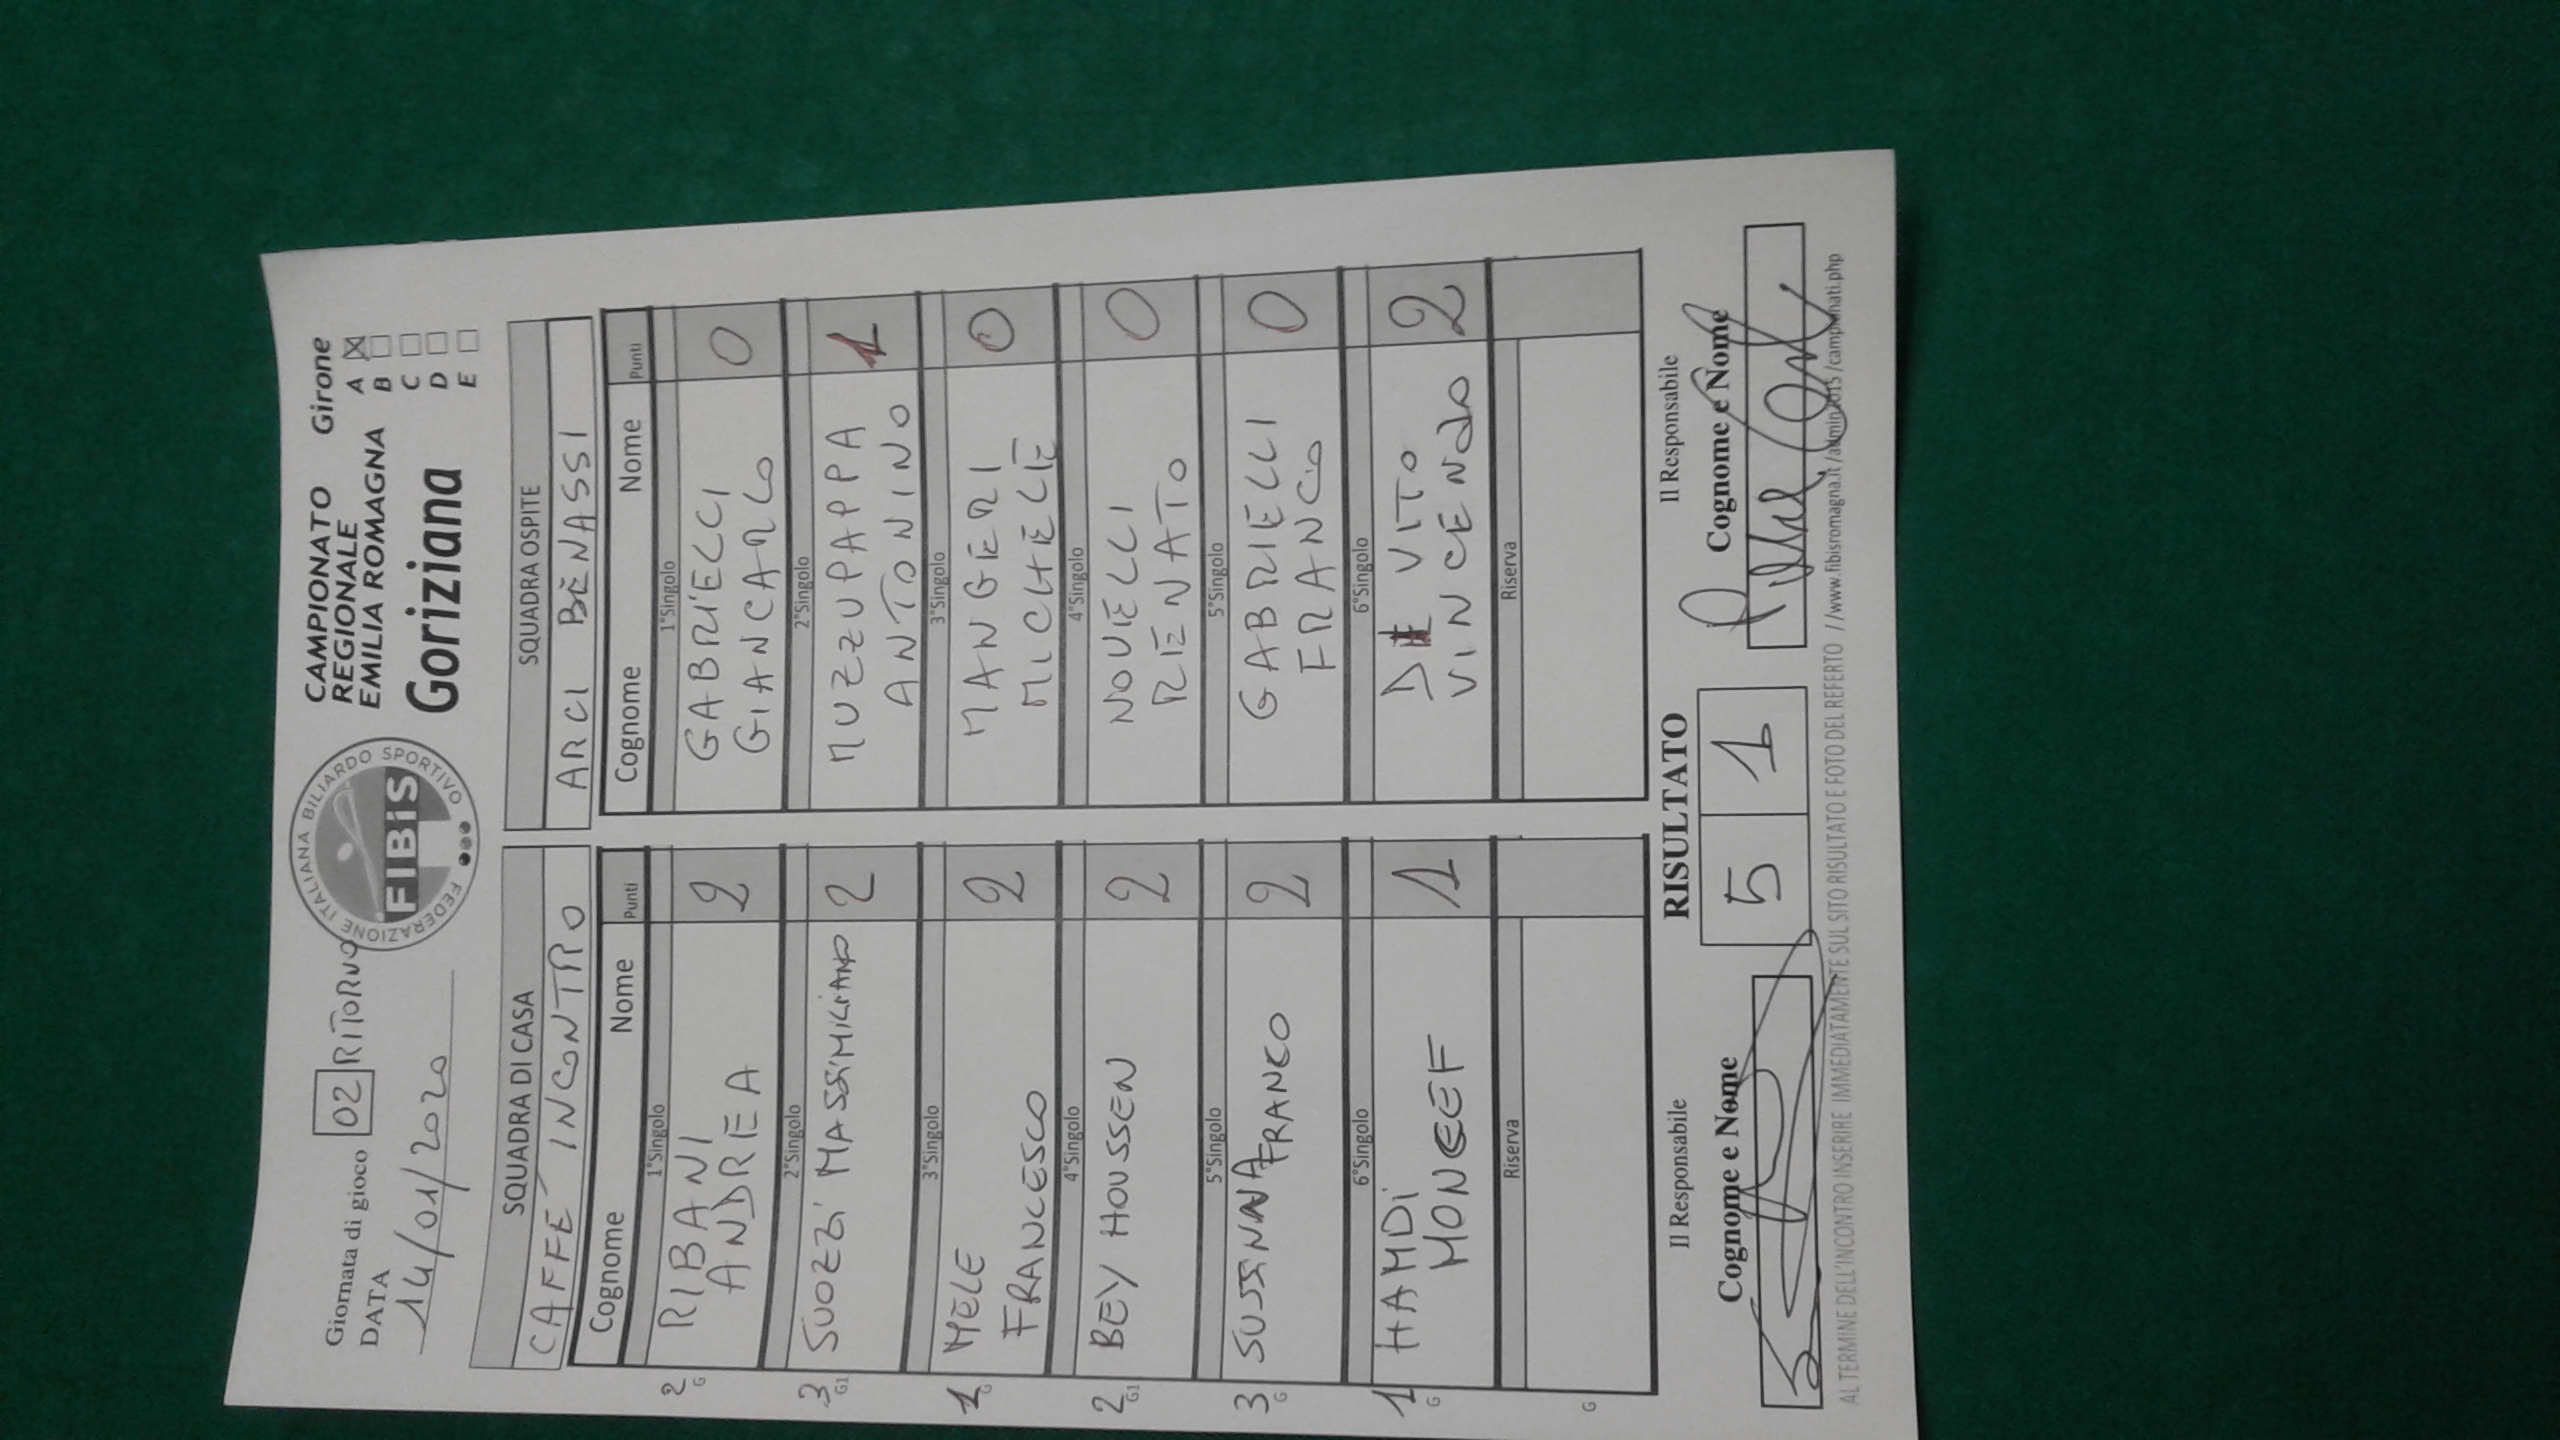 Giornata di gioco 02 RITORNO
DATA
14/01/2020
FEDERAZIONE ITALIANA BILIARDO SPORTIVO
FIBiS
CAMPIONATO
REGIONALE
EMILIA ROMAGNA
Goriziana
Girone
A X
B
C
D
E
SQUADRA DI CASA
CAFFÉ INCONTRO
Cognome Nome Punti
1°Singolo
2 G RIBANI
ANDREA 2
2°Singolo
3 G1 SUOZZI MASSIMILIANO 2
3°Singolo
1 G MELE
FRANCESCO 2
4°Singolo
2 G1 BEY HOUSSEN 2
5°Singolo
3 G SUSSINNA FRANCO 2
6°Singolo
1 G HAMDI
MONCEF 1
Riserva
G
SQUADRA OSPITE
ARCI BENASSI
Cognome Nome Punti
1°Singolo
GABRIELLI
GIANCARLO 0
2°Singolo
MUZZUPAPPA
ANTONINO 1
3°Singolo
MANGERI
MICHELE 0
4°Singolo
NOVELLI
RENATO 0
5°Singolo
GABRIELLI
FRANCO 0
6°Singolo
DE VITO
VINCENZO 2
Riserva
Il Responsabile
Cognome e Nome
RISULTATO
5 1
Il Responsabile
Cognome e Nome
AL TERMINE DELL'INCONTRO INSERIRE IMMEDIATAMENTE SUL SITO RISULTATO E FOTO DEL REFERTO //www.fibisromagna.it/admin2015/campionati.php